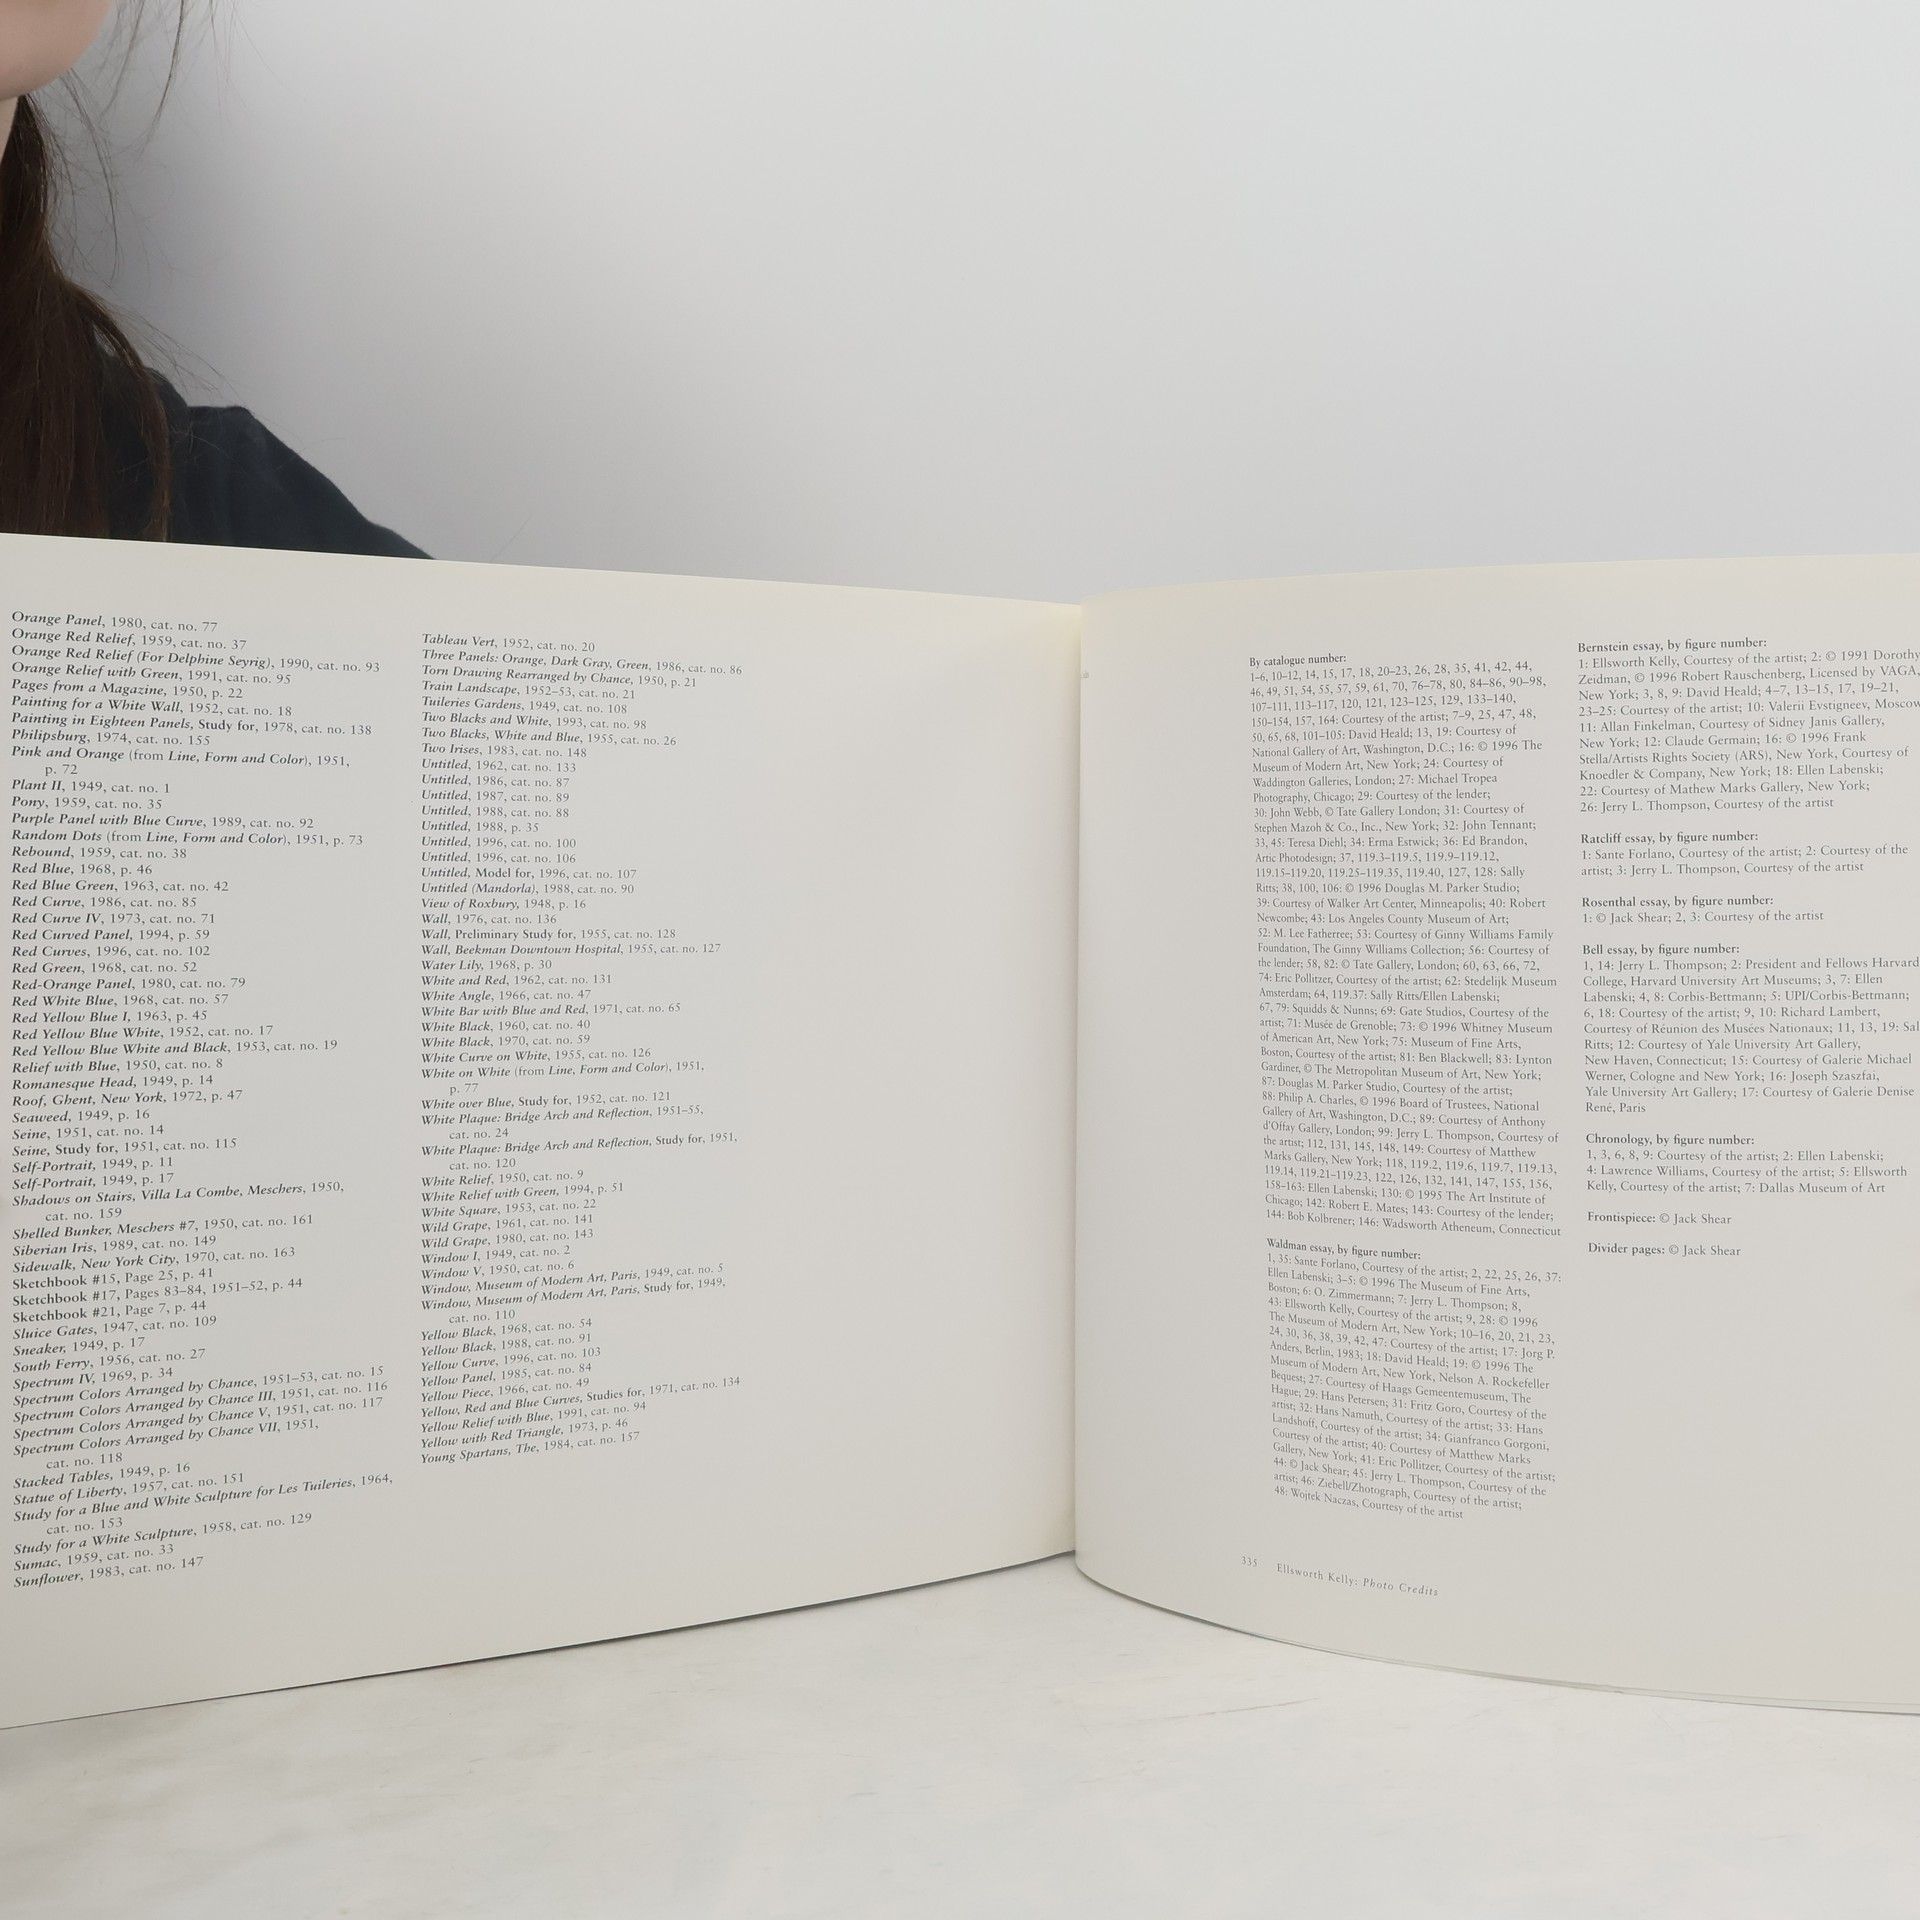 Orange Panel, 1980, cat. no. 77
Orange Red Relief, 1959, cat. no. 37
Orange Red Relief (For Delphine Seyrig), 1990, cat. no. 93
Orange Relief with Green, 1991, cat. no. 95
Pages from a Magazine, 1950, p. 22
Painting for a White Wall, 1952, cat. no. 18
Painting in Eighteen Panels, Study for, 1978, cat. no. 138
Philipsburg, 1974, cat. no. 155
Pink and Orange (from Line, Form and Color), 1951,
p. 72
Plant II, 1949, cat. no. 1
Pony, 1959, cat. no. 35
Purple Panel with Blue Curve, 1989, cat. no. 92
Random Dots (from Line, Form and Color), 1951, p. 73
Rebound, 1959, cat. no. 38
Red Blue, 1968, p. 46
Red Blue Green, 1963, cat. no. 42
Red Curve, 1986, cat. no. 85
Red Curve IV, 1973, cat. no. 71
Red Curved Panel, 1994, p. 59
Red Curves, 1996, cat. no. 102
Red Green, 1968, cat. no. 52
Red-Orange Panel, 1980, cat. no. 79
Red White Blue, 1968, cat. no. 57
Red Yellow Blue I, 1963, p. 45
Red Yellow Blue White, 1952, cat. no. 17
Red Yellow Blue White and Black, 1953, cat. no. 19
Relief with Blue, 1950, cat. no. 8
Romanesque Head, 1949, p. 14
Roof, Ghent, New York, 1972, p. 47
Seaweed, 1949, p. 16
Seine, 1951, cat. no. 14
Seine, Study for, 1951, cat. no. 115
Self-Portrait, 1949, p. 11
Self-Portrait, 1949, p. 17
Shadows on Stairs, Villa La Combe, Meschers, 1950,
cat. no. 159
Shelled Bunker, Meschers #7, 1950, cat. no. 161
Siberian Iris, 1989, cat. no. 149
Sidewalk, New York City, 1970, cat. no. 163
Sketchbook #15, Page 25, p. 41
Sketchbook #17, Pages 83–84, 1951–52, p. 44
Sketchbook #21, Page 7, p. 44
Sluice Gates, 1947, cat. no. 109
Sneaker, 1949, p. 17
South Ferry, 1956, cat. no. 27
Spectrum IV, 1969, p. 34
Spectrum Colors Arranged by Chance, 1951–53, cat. no. 15
Spectrum Colors Arranged by Chance III, 1951, cat. no. 116
Spectrum Colors Arranged by Chance V, 1951, cat. no. 117
Spectrum Colors Arranged by Chance VII, 1951,
cat. no. 118
Stacked Tables, 1949, p. 16
Statue of Liberty, 1957, cat. no. 151
Study for a Blue and White Sculpture for Les Tuileries, 1964,
cat. no. 153
Study for a White Sculpture, 1958, cat. no. 129
Sumac, 1959, cat. no. 33
Sunflower, 1983, cat. no. 147
Tableau Vert, 1952, cat. no. 20
Three Panels: Orange, Dark Gray, Green, 1986, cat. no. 86
Torn Drawing Rearranged by Chance, 1950, p. 21
Train Landscape, 1952–53, cat. no. 21
Tuileries Gardens, 1949, cat. no. 108
Two Blacks and White, 1993, cat. no. 98
Two Blacks, White and Blue, 1955, cat. no. 26
Two Irises, 1983, cat. no. 148
Untitled, 1962, cat. no. 133
Untitled, 1986, cat. no. 87
Untitled, 1987, cat. no. 89
Untitled, 1988, cat. no. 88
Untitled, 1988, p. 35
Untitled, 1996, cat. no. 100
Untitled, 1996, cat. no. 106
Untitled, Model for, 1996, cat. no. 107
Untitled (Mandorla), 1988, cat. no. 90
View of Roxbury, 1948, p. 16
Wall, 1976, cat. no. 136
Wall, Preliminary Study for, 1955, cat. no. 128
Wall, Beekman Downtown Hospital, 1955, cat. no. 127
Water Lily, 1968, p. 30
White and Red, 1962, cat. no. 131
White Angle, 1966, cat. no. 47
White Bar with Blue and Red, 1971, cat. no. 65
White Black, 1960, cat. no. 40
White Black, 1970, cat. no. 59
White Curve on White, 1955, cat. no. 126
White on White (from Line, Form and Color), 1951,
p. 77
White over Blue, Study for, 1952, cat. no. 121
White Plaque: Bridge Arch and Reflection, 1951–55,
cat. no. 24
White Plaque: Bridge Arch and Reflection, Study for, 1951,
cat. no. 120
White Relief, 1950, cat. no. 9
White Relief with Green, 1994, p. 51
White Square, 1953, cat. no. 22
Wild Grape, 1961, cat. no. 141
Wild Grape, 1980, cat. no. 143
Window I, 1949, cat. no. 2
Window V, 1950, cat. no. 6
Window, Museum of Modern Art, Paris, 1949, cat. no. 5
Window, Museum of Modern Art, Paris, Study for, 1949,
cat. no. 110
Yellow Black, 1968, cat. no. 54
Yellow Black, 1988, cat. no. 91
Yellow Curve, 1996, cat. no. 103
Yellow Panel, 1985, cat. no. 84
Yellow Piece, 1966, cat. no. 49
Yellow, Red and Blue Curves, Studies for, 1971, cat. no. 134
Yellow Relief with Blue, 1991, cat. no. 94
Yellow with Red Triangle, 1973, p. 46
Young Spartans, The, 1984, cat. no. 157
By catalogue number:
1–6, 10–12, 14, 15, 17, 18, 20–23, 26, 28, 35, 41, 42, 44,
46, 49, 51, 54, 55, 57, 59, 61, 70, 76–78, 80, 84–86, 90–98,
107–111, 113–117, 120, 121, 123–125, 129, 133–140,
150–154, 157, 164: Courtesy of the artist; 7–9, 25, 47, 48,
50, 65, 68, 101–105: David Heald; 13, 19: Courtesy of
National Gallery of Art, Washington, D.C.; 16: © 1996 The
Museum of Modern Art, New York; 24: Courtesy of
Waddington Galleries, London; 27: Michael Tropea
Photography, Chicago; 29: Courtesy of the lender;
30: John Webb, © Tate Gallery London; 31: Courtesy of
Stephen Mazoh & Co., Inc., New York; 32: John Tennant;
33, 45: Teresa Diehl; 34: Erma Estwick; 36: Ed Brandon,
Artic Photodesign; 37, 119.3–119.5, 119.9–119.12,
119.15–119.20, 119.25–119.35, 119.40, 127, 128: Sally
Ritts; 38, 100, 106: © 1996 Douglas M. Parker Studio;
39: Courtesy of Walker Art Center, Minneapolis; 40: Robert
Newcombe; 43: Los Angeles County Museum of Art;
52: M. Lee Fatherree; 53: Courtesy of Ginny Williams Family
Foundation, The Ginny Williams Collection; 56: Courtesy of
the lender; 58, 82: © Tate Gallery, London; 60, 63, 66, 72,
74: Eric Pollitzer, Courtesy of the artist; 62: Stedelijk Museum
Amsterdam; 64, 119.37: Sally Ritts/Ellen Labenski;
67, 79: Squidds & Nunns; 69: Gate Studios, Courtesy of the
artist; 71: Musée de Grenoble; 73: © 1996 Whitney Museum
of American Art, New York; 75: Museum of Fine Arts,
Boston, Courtesy of the artist; 81: Ben Blackwell; 83: Lynton
Gardiner, © The Metropolitan Museum of Art, New York;
87: Douglas M. Parker Studio, Courtesy of the artist;
88: Philip A. Charles, © 1996 Board of Trustees, National
Gallery of Art, Washington, D.C.; 89: Courtesy of Anthony
d'Offay Gallery, London; 99: Jerry L. Thompson, Courtesy of
the artist; 112, 131, 145, 148, 149: Courtesy of Matthew
Marks Gallery, New York; 118, 119.2, 119.6, 119.7, 119.13,
119.14, 119.21–119.23, 122, 126, 132, 141, 147, 155, 156,
158–163: Ellen Labenski; 130: © 1995 The Art Institute of
Chicago; 142: Robert E. Mates; 143: Courtesy of the lender;
144: Bob Kolbrener; 146: Wadsworth Atheneum, Connecticut
Waldman essay, by figure number:
1, 35: Sante Forlano, Courtesy of the artist; 2, 22, 25, 26, 37:
Ellen Labenski; 3–5: © 1996 The Museum of Fine Arts,
Boston; 6: O. Zimmermann; 7: Jerry L. Thompson; 8,
43: Ellsworth Kelly, Courtesy of the artist; 9, 28: © 1996
The Museum of Modern Art, New York; 10–16, 20, 21, 23,
24, 30, 36, 38, 39, 42, 47: Courtesy of the artist; 17: Jorg P.
Anders, Berlin, 1983; 18: David Heald; 19: © 1996 The
Museum of Modern Art, New York, Nelson A. Rockefeller
Bequest; 27: Courtesy of Haags Gemeentemuseum, The
Hague; 29: Hans Petersen; 31: Fritz Goro, Courtesy of the
artist; 32: Hans Namuth, Courtesy of the artist; 33: Hans
Landshoff, Courtesy of the artist; 34: Gianfranco Gorgoni,
Courtesy of the artist; 40: Courtesy of Matthew Marks
Gallery, New York; 41: Eric Pollitzer, Courtesy of the artist;
44: © Jack Shear; 45: Jerry L. Thompson, Courtesy of the
artist; 46: Ziebell/Zhotograph, Courtesy of the artist;
48: Wojtek Naczas, Courtesy of the artist
Bernstein essay, by figure number:
1: Ellsworth Kelly, Courtesy of the artist; 2: © 1991 Dorothy
Zeidman, © 1996 Robert Rauschenberg, Licensed by VAGA,
New York; 3, 8, 9: David Heald; 4–7, 13–15, 17, 19–21,
23–25: Courtesy of the artist; 10: Valerii Evstigneev, Moscow
11: Allan Finkelman, Courtesy of Sidney Janis Gallery,
New York; 12: Claude Germain; 16: © 1996 Frank
Stella/Artists Rights Society (ARS), New York, Courtesy of
Knoedler & Company, New York; 18: Ellen Labenski;
22: Courtesy of Mathew Marks Gallery, New York;
26: Jerry L. Thompson, Courtesy of the artist
Ratcliff essay, by figure number:
1: Sante Forlano, Courtesy of the artist; 2: Courtesy of the
artist; 3: Jerry L. Thompson, Courtesy of the artist
Rosenthal essay, by figure number:
1: © Jack Shear; 2, 3: Courtesy of the artist
Bell essay, by figure number:
1, 14: Jerry L. Thompson; 2: President and Fellows Harvard
College, Harvard University Art Museums; 3, 7: Ellen
Labenski; 4, 8: Corbis-Bettmann; 5: UPI/Corbis-Bettmann;
6, 18: Courtesy of the artist; 9, 10: Richard Lambert,
Courtesy of Réunion des Musées Nationaux; 11, 13, 19: Sal
Ritts; 12: Courtesy of Yale University Art Gallery,
New Haven, Connecticut; 15: Courtesy of Galerie Michael
Werner, Cologne and New York; 16: Joseph Szaszfai,
Yale University Art Gallery; 17: Courtesy of Galerie Denise
René, Paris
Chronology, by figure number:
1, 3, 6, 8, 9: Courtesy of the artist; 2: Ellen Labenski;
4: Lawrence Williams, Courtesy of the artist; 5: Ellsworth
Kelly, Courtesy of the artist; 7: Dallas Museum of Art
Frontispiece: © Jack Shear
Divider pages: © Jack Shear
335 Ellsworth Kelly: Photo Credits